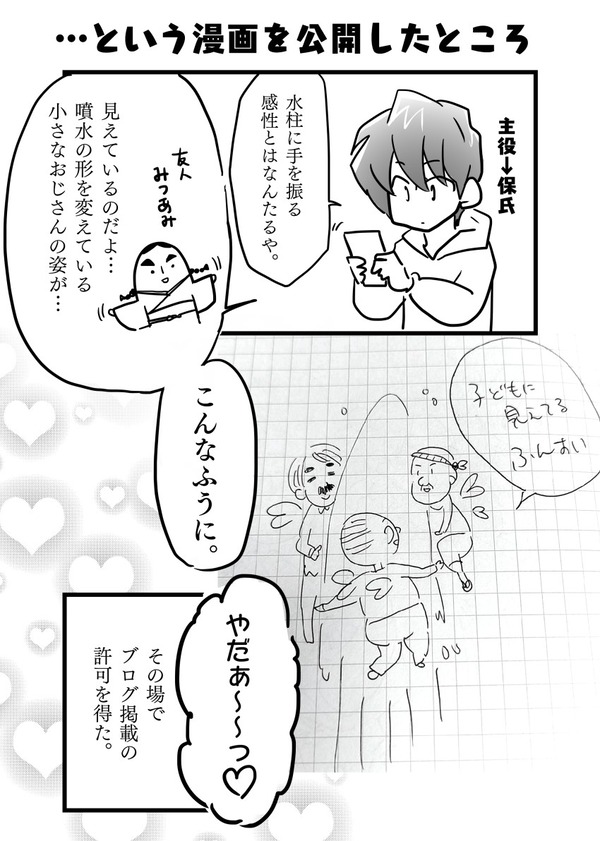 …という漫画を公開したところ
主役→保氏
水柱に手を振る
感性とはなんたるや。
友人
みつあみ
見えているのだよ…
噴水の形を変えている
小さなおじさんの姿が…
こんなふうに。
子どもに
見えてる
ふんすい
やだぁ〜〜っ♡
その場で
ブログ掲載の
許可を得た。